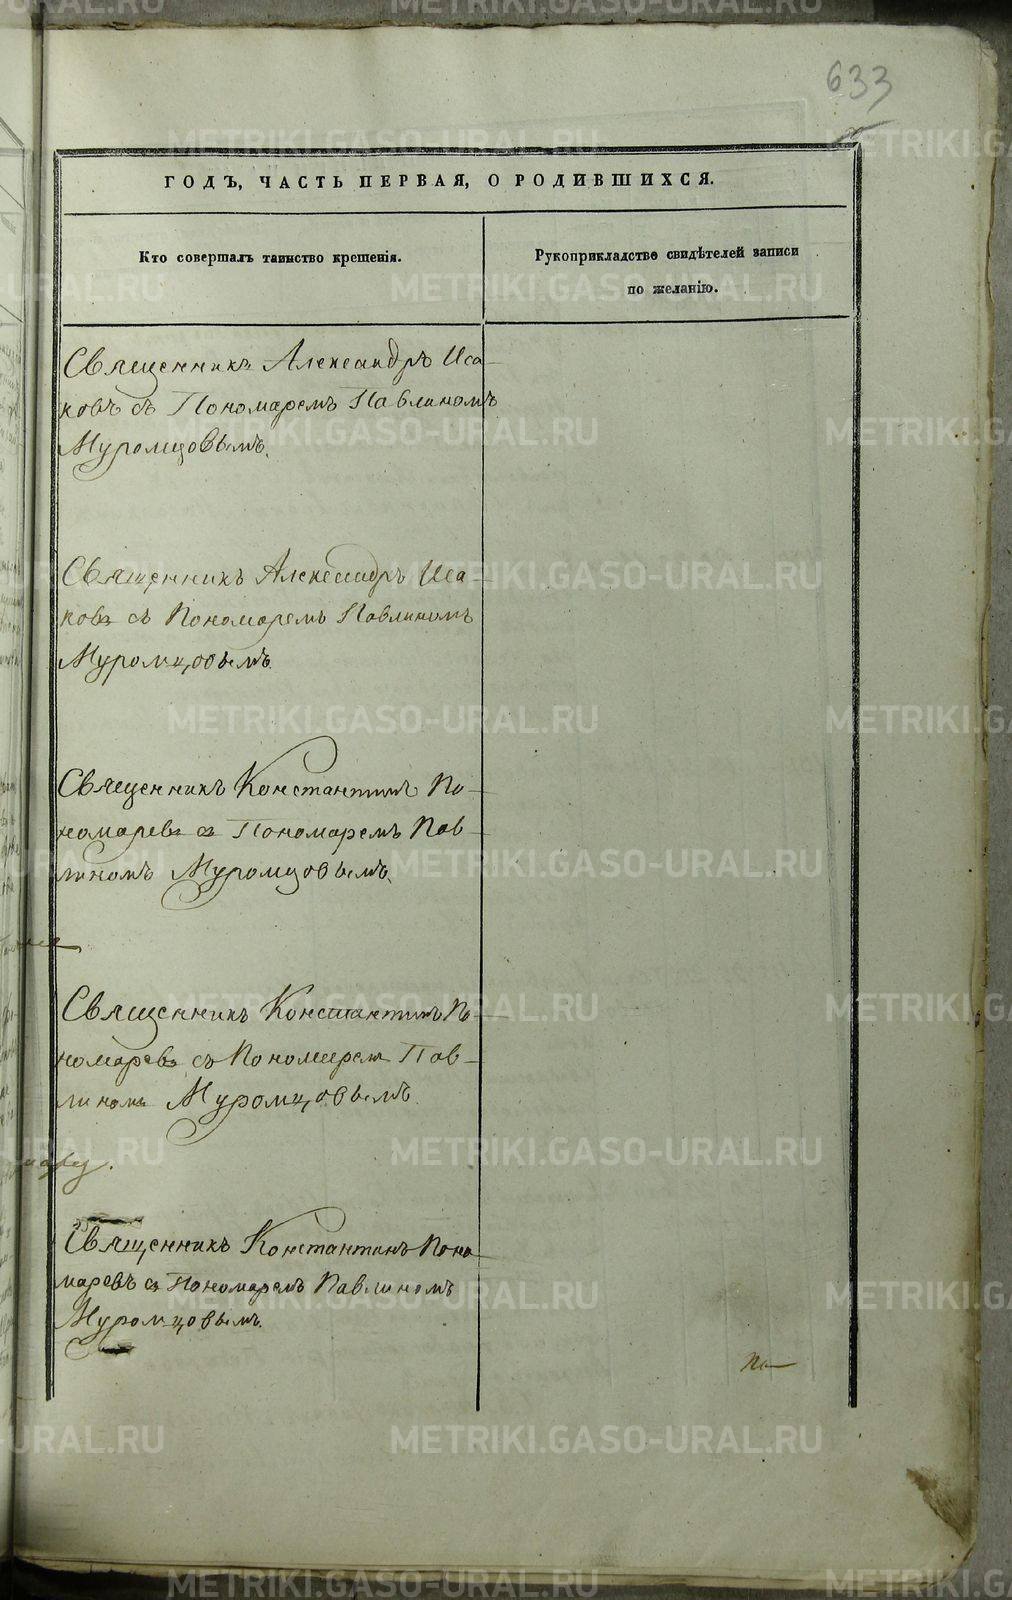 633
ГОДЪ, ЧАСТЬ ПЕРВАЯ, О РОДИВШИХСЯ.
Кто совершалъ таинство крещенія.
Рукоприкладство свидѣтелей записи
по желанію.
Священникъ Александръ Иса-
ковъ съ Пономаремъ Павлиномъ
Муромцовымъ.
Священникъ Александръ Иса-
ковъ съ Пономаремъ Павлиномъ
Муромцовымъ.
Священникъ Константинъ По-
номаревъ съ Пономаремъ Пав-
линомъ Муромцовымъ.
Священникъ Константинъ По-
номаревъ съ Пономаремъ Пав-
линомъ Муромцовымъ.
Священникъ Константинъ Поно
маревъ съ Пономаремъ Павлиномъ
Муромцовымъ.
METRIKI.GASO-URAL.RU